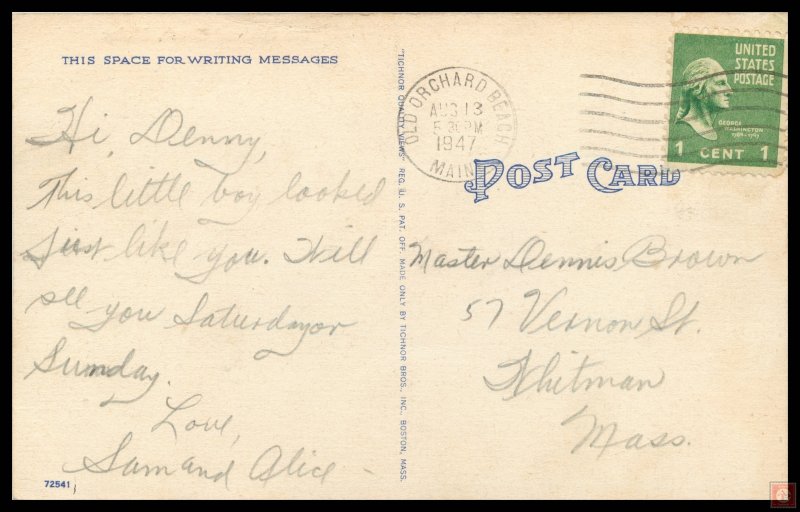 THIS SPACE FOR WRITING MESSAGES
Hi, Denny,
This little boy looked
just like you. Will
see you Saturday or
Sunday.
Love,
Sam and Alice
72541
"TICHNOR QUALITY VIEWS" REG. U. S. PAT. OFF. MADE ONLY BY TICHNOR BROS., INC., BOSTON, MASS.
OLD ORCHARD BEACH
AUG 13
5 30 PM
1947
MAINE
UNITED
STATES
POSTAGE
GEORGE
WASHINGTON
1789-1797
1 CENT 1
POST CARD
Master Dennis Brown
57 Vernon St.
Whitman
Mass.